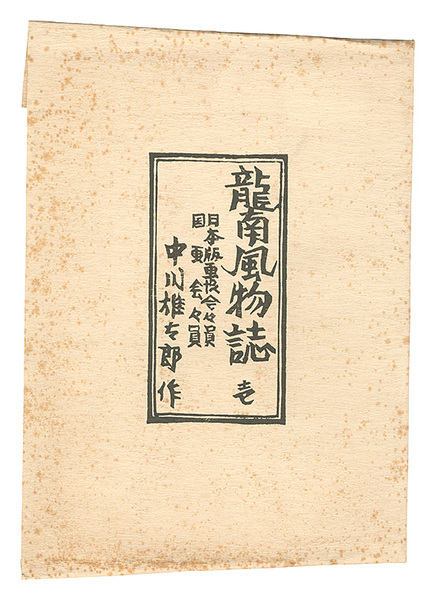 龍南風物誌 壱
日本版画協会々員
国画会々員
中川雄太郎作